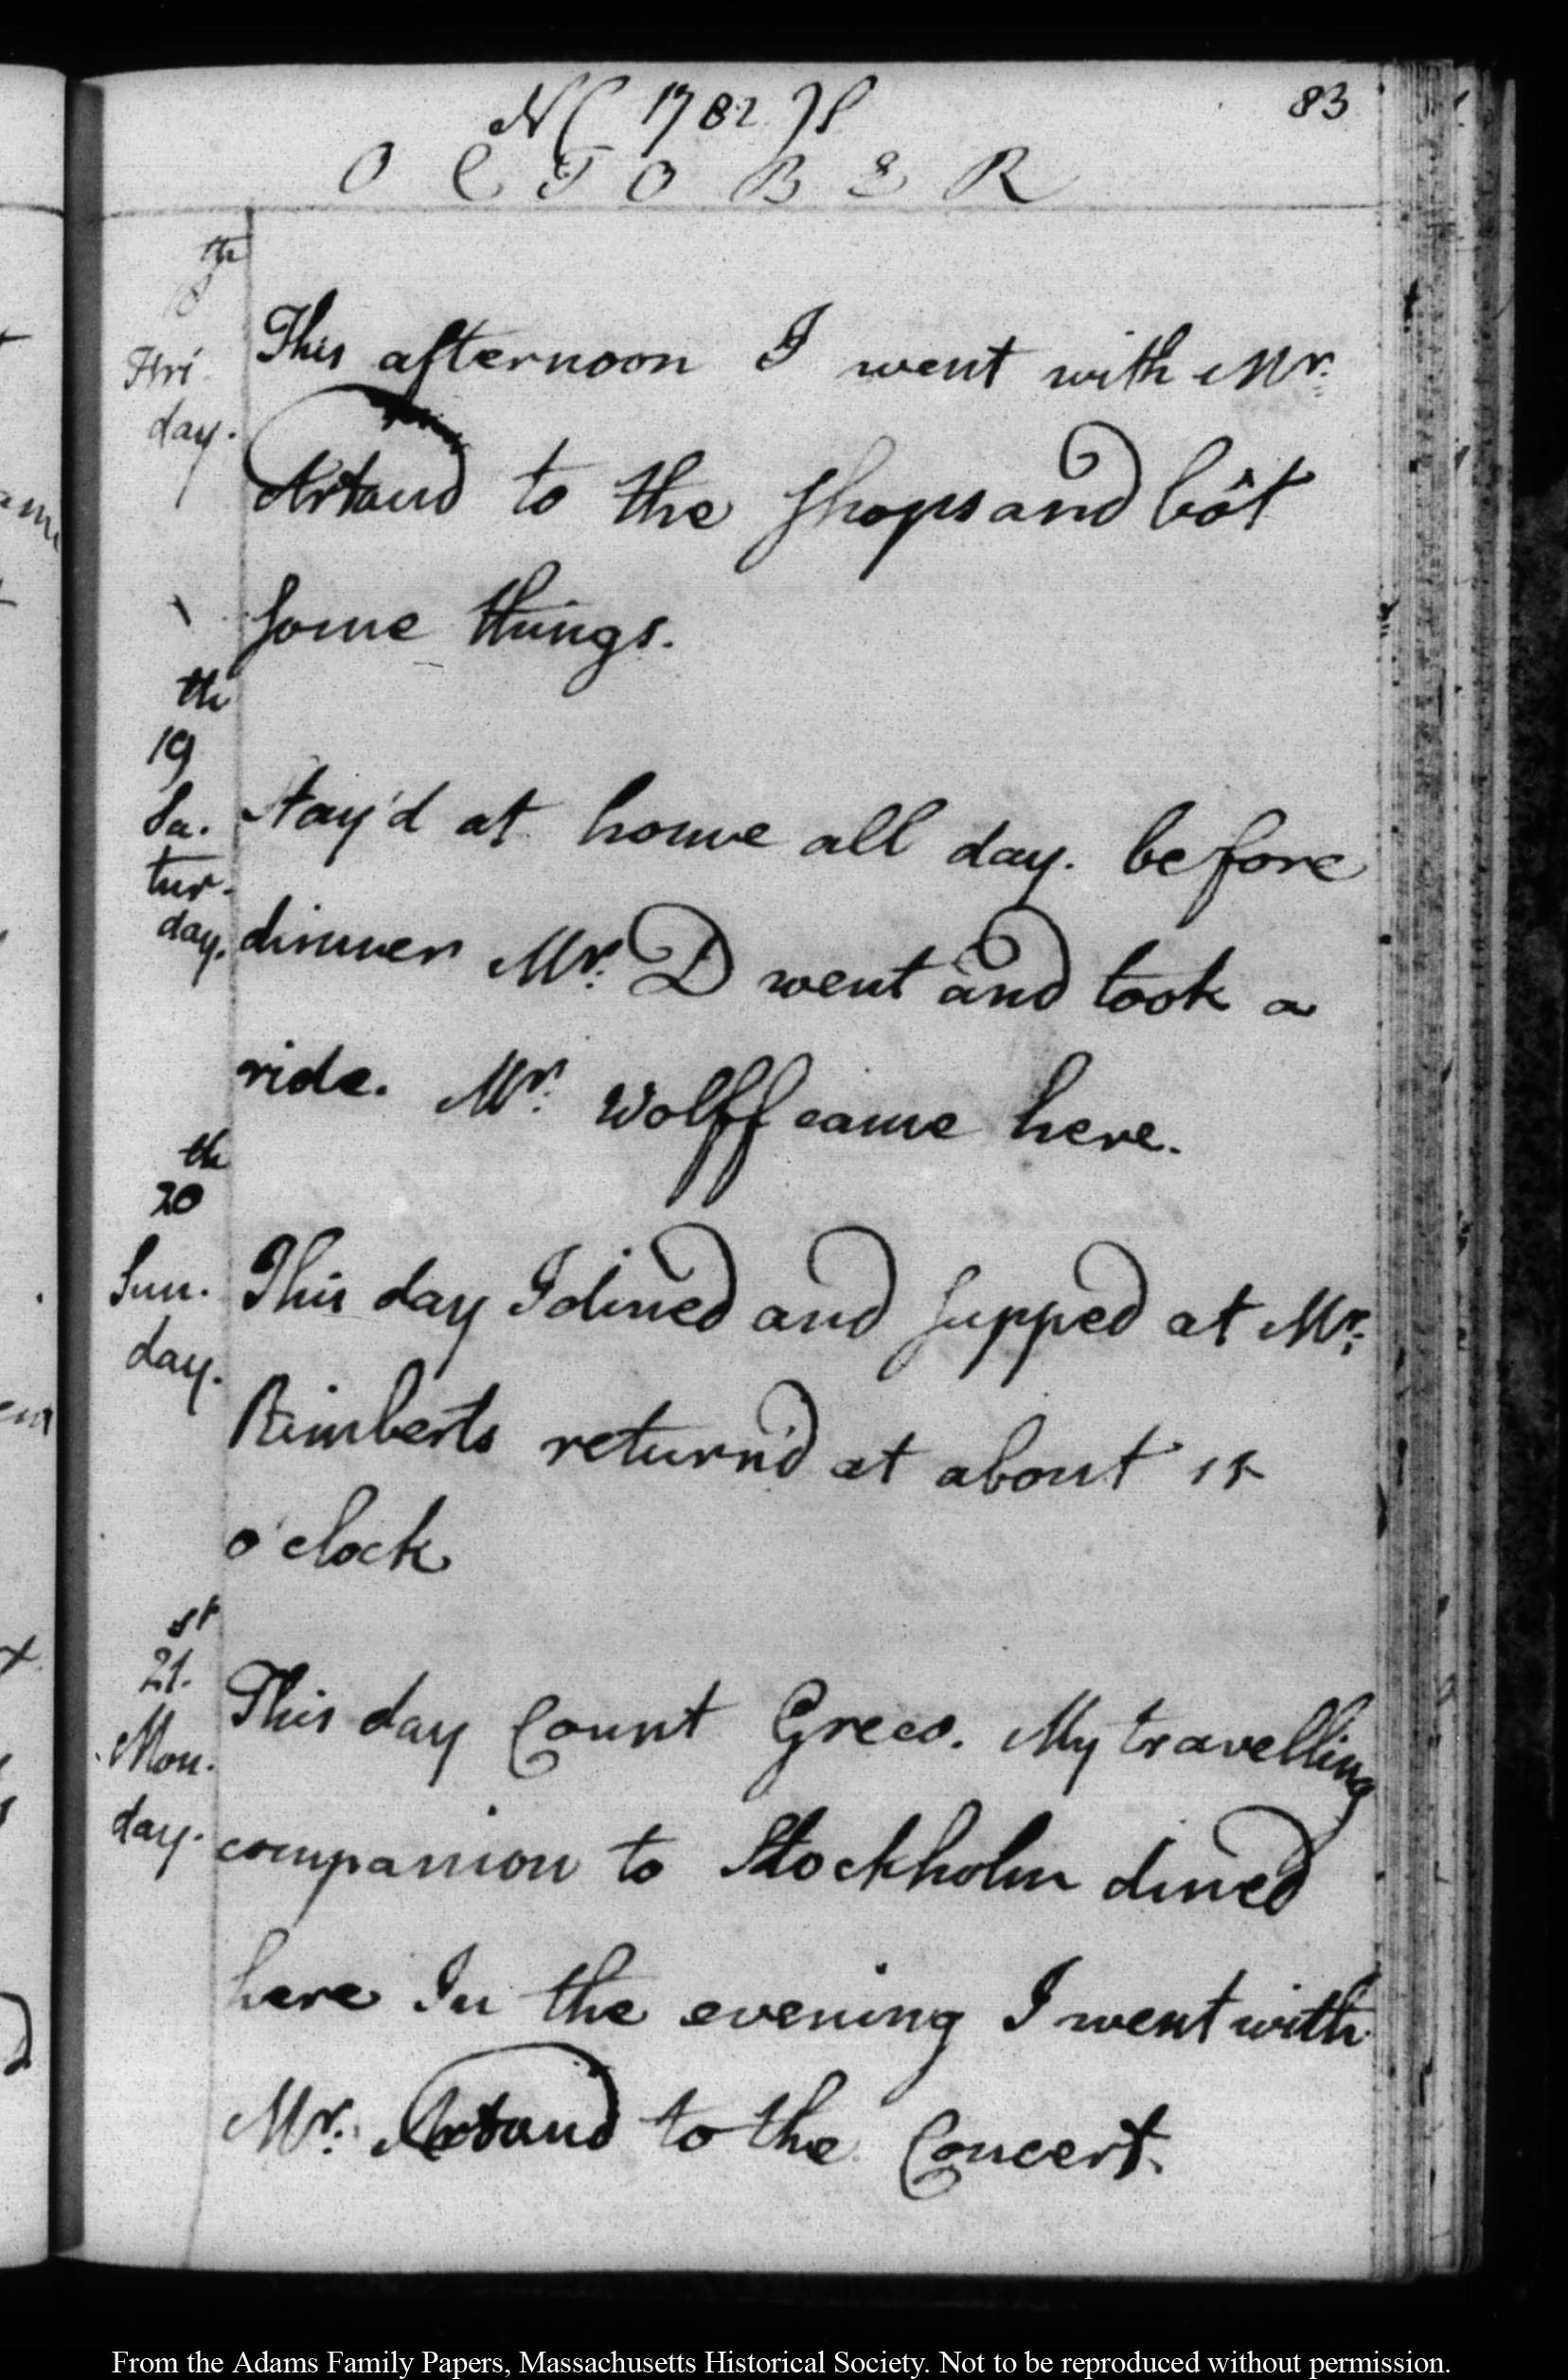 1782
83
OCTOBER
th
Fri
day.
This afternoon I went with Mr.
Artaud to the shops and bôt
some things.
th
19
Sa.
tur.
day.
Stay'd at home all day. before
dinner Mr. D went and took a
ride. Mr. Wolff came here.
th
20
Sun.
day.
This day I dined and supped at Mr.
Rimberts return'd at about
o'clock
st
21.
Mon.
day.
This day Count Greco. My travelling
companion to Stockholm dined
here In the evening I went with
Mr. Artaud to the Concert.
From the Adams Family Papers, Massachusetts Historical Society. Not to be reproduced without permission.